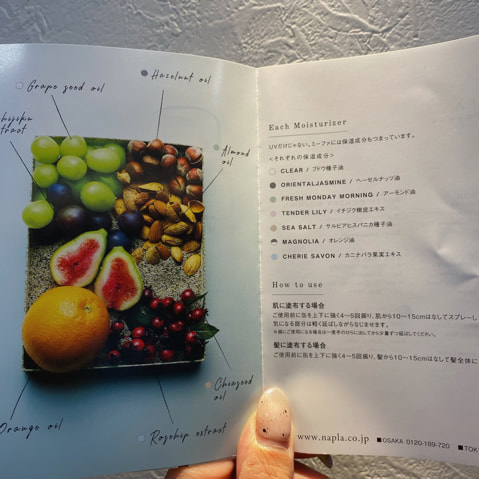 Grape seed oil
Hazelnut oil
Almond
oil
Chiaseed
oil
Orange oil
Rosehip extract
Each Moisturizer
UVだけじゃない。ミーファには保湿成分もつまっています。
<それぞれの保湿成分>
CLEAR / ブドウ種子油
ORIENTALJASMINE / ヘーゼルナッツ油
FRESH MONDAY MORNING / アーモンド油
TENDER LILY / イチジク樹皮エキス
SEA SALT / サルビアヒスパニカ種子油
MAGNOLIA / オレンジ油
CHERIE SAVON / カニナバラ果実エキス
How to use
肌に塗布する場合
ご使用前に缶を上下に強く4〜5回振り、肌から10〜15cmはなしてスプレーし
気になる部分は軽く延ばしながらなじませます。
※顔にご使用になる場合は一度手のひらに出してから少量ずつ延ばしてください。
髪に塗布する場合
ご使用前に缶を上下に強く4〜5回振り、髪から10〜15cmはなして髪全体に
www.napla.co.jp ■OSAKA 0120-189-720 ■TOK